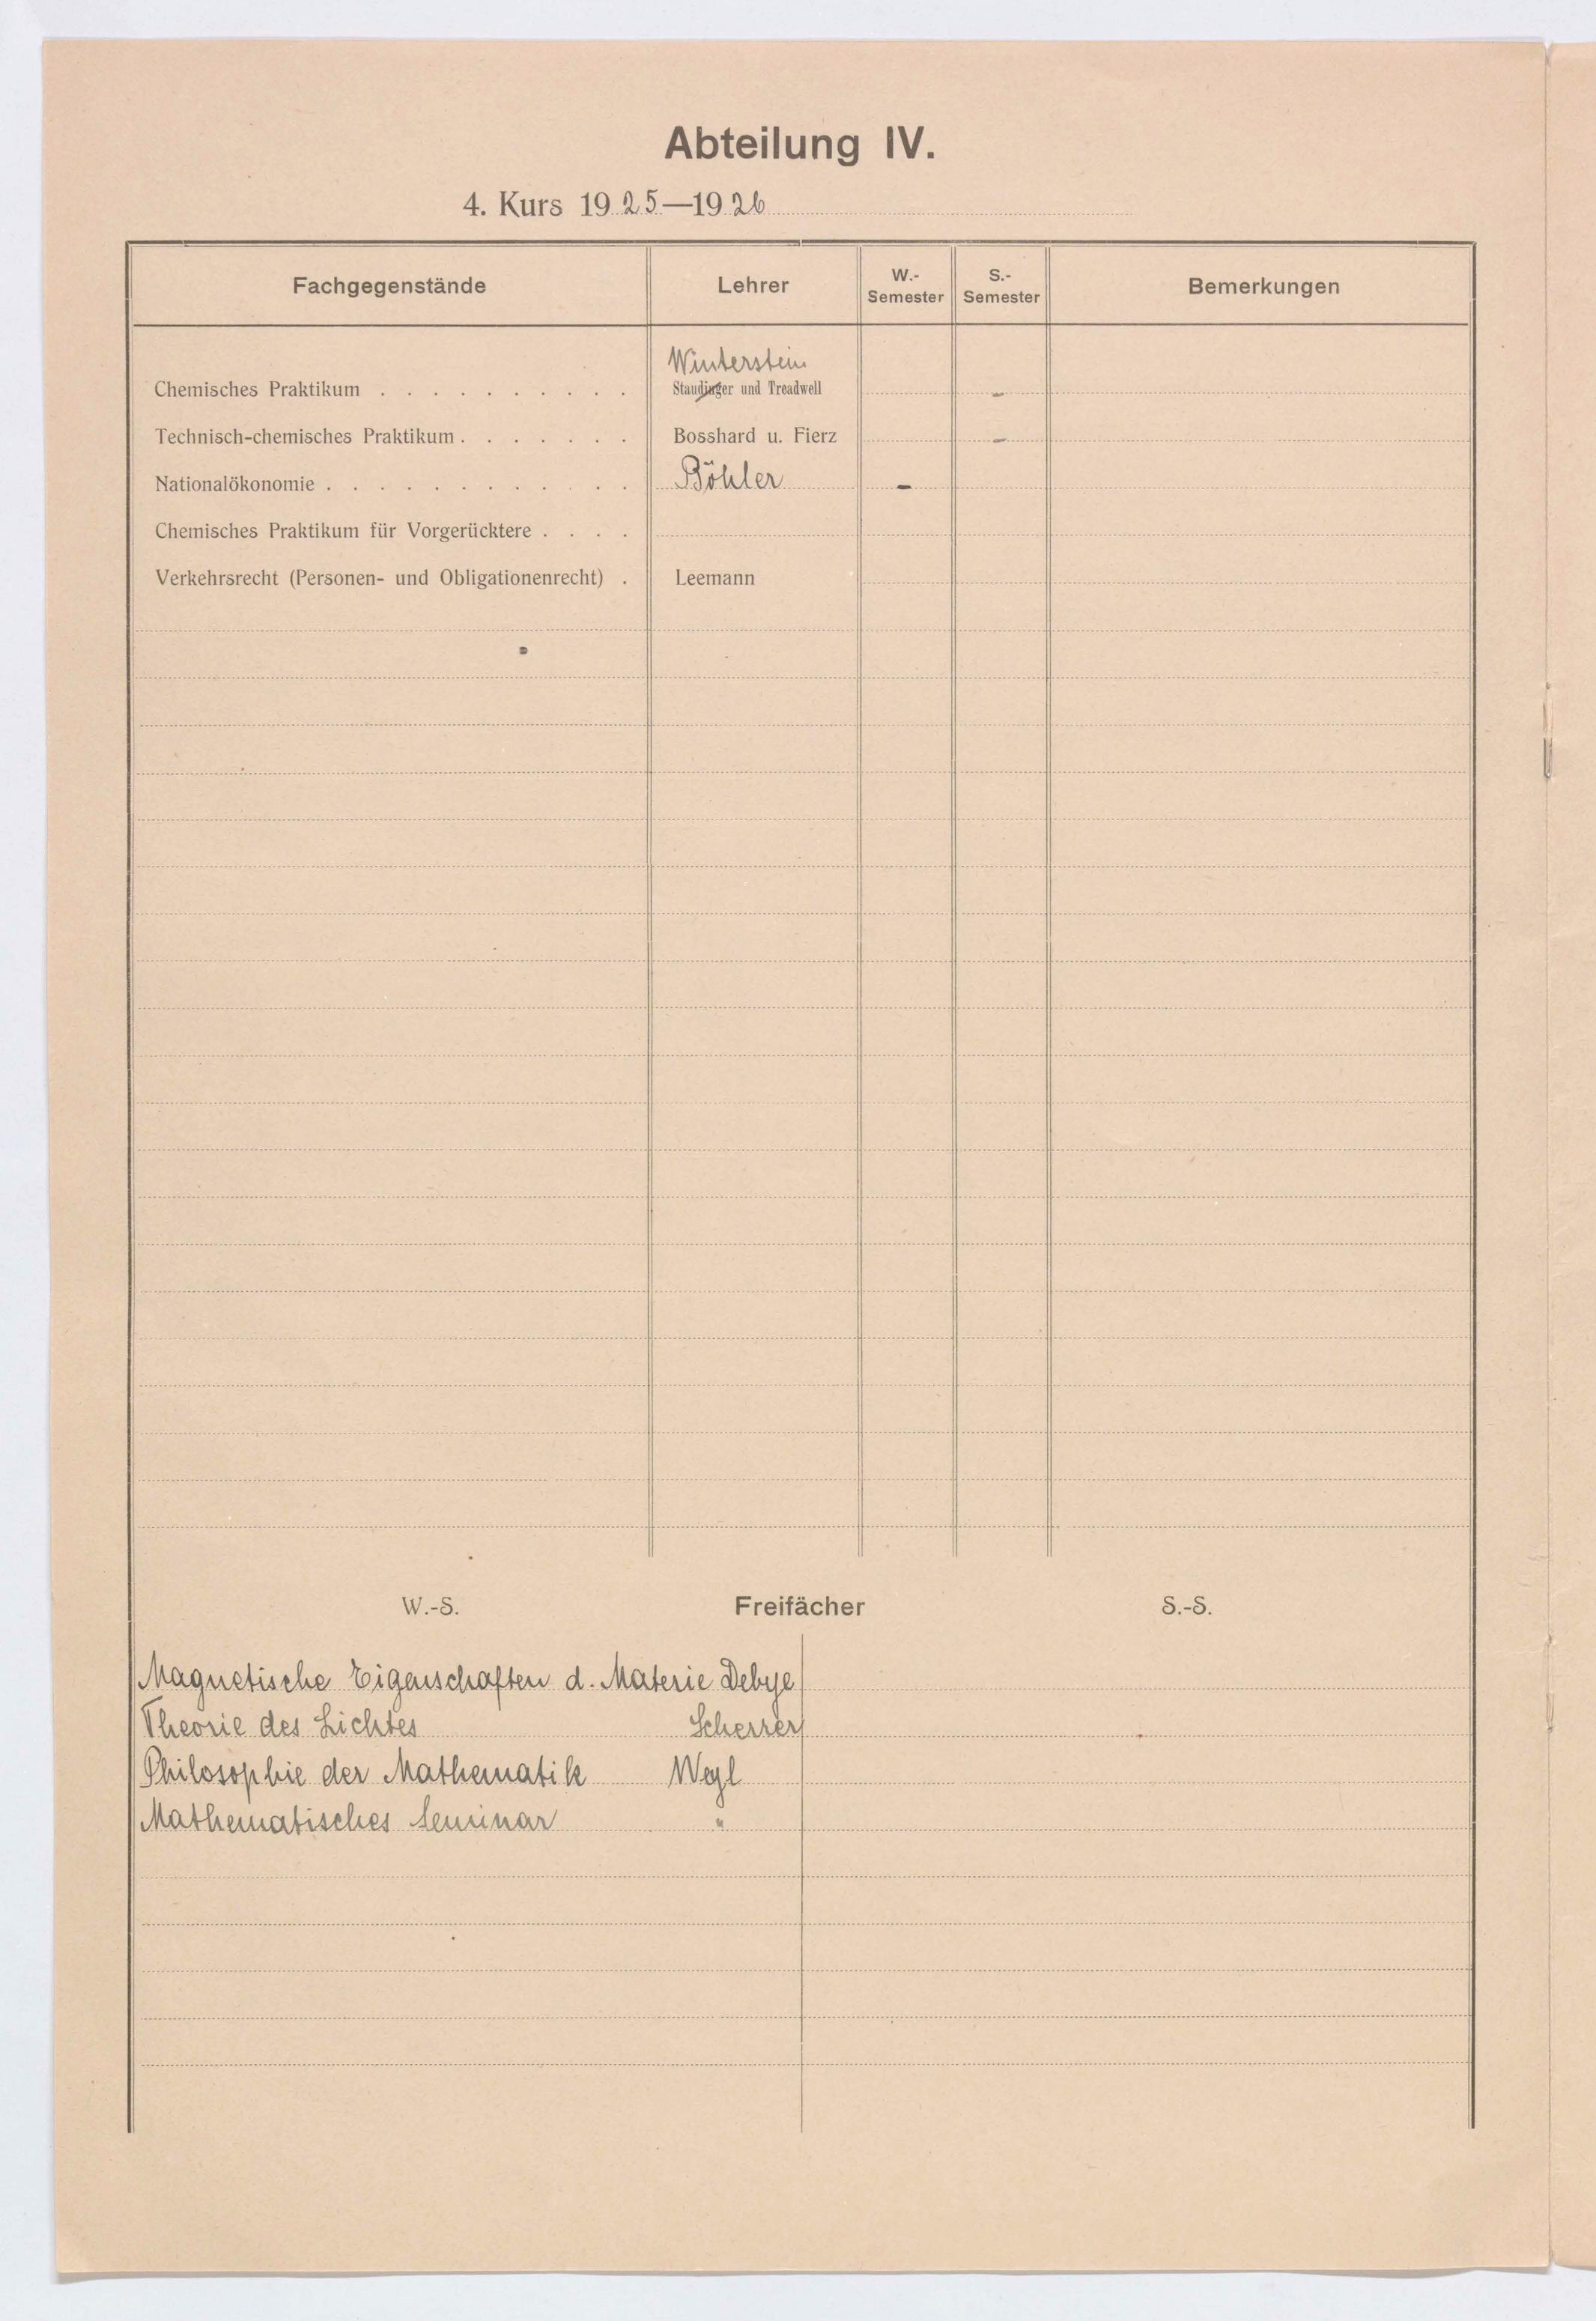 Abteilung IV.
4. Kurs 1925—1926
Fachgegenstände Lehrer W.-Semester S.-Semester Bemerkungen
Winterstein
Chemisches Praktikum . . . . . . . . . . Staudinger und Treadwell -
Technisch-chemisches Praktikum . . . . . . . Bosshard u. Fierz -
Nationalökonomie . . . . . . . . . . . . Böhler -
Chemisches Praktikum für Vorgerücktere . . . .
Verkehrsrecht (Personen- und Obligationenrecht) . Leemann
W.-S. Freifächer S.-S.
Magnetische Eigenschaften d. Materie Debye
Theorie des Lichtes Scherrer
Philosophie der Mathematik Weyl
Mathematisches Seminar "